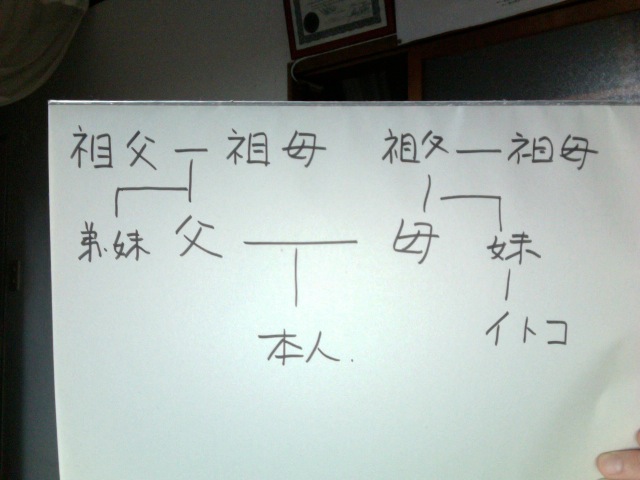 祖父 祖母 祖父 祖母
弟.妹 父 母 妹
本人. イトコ